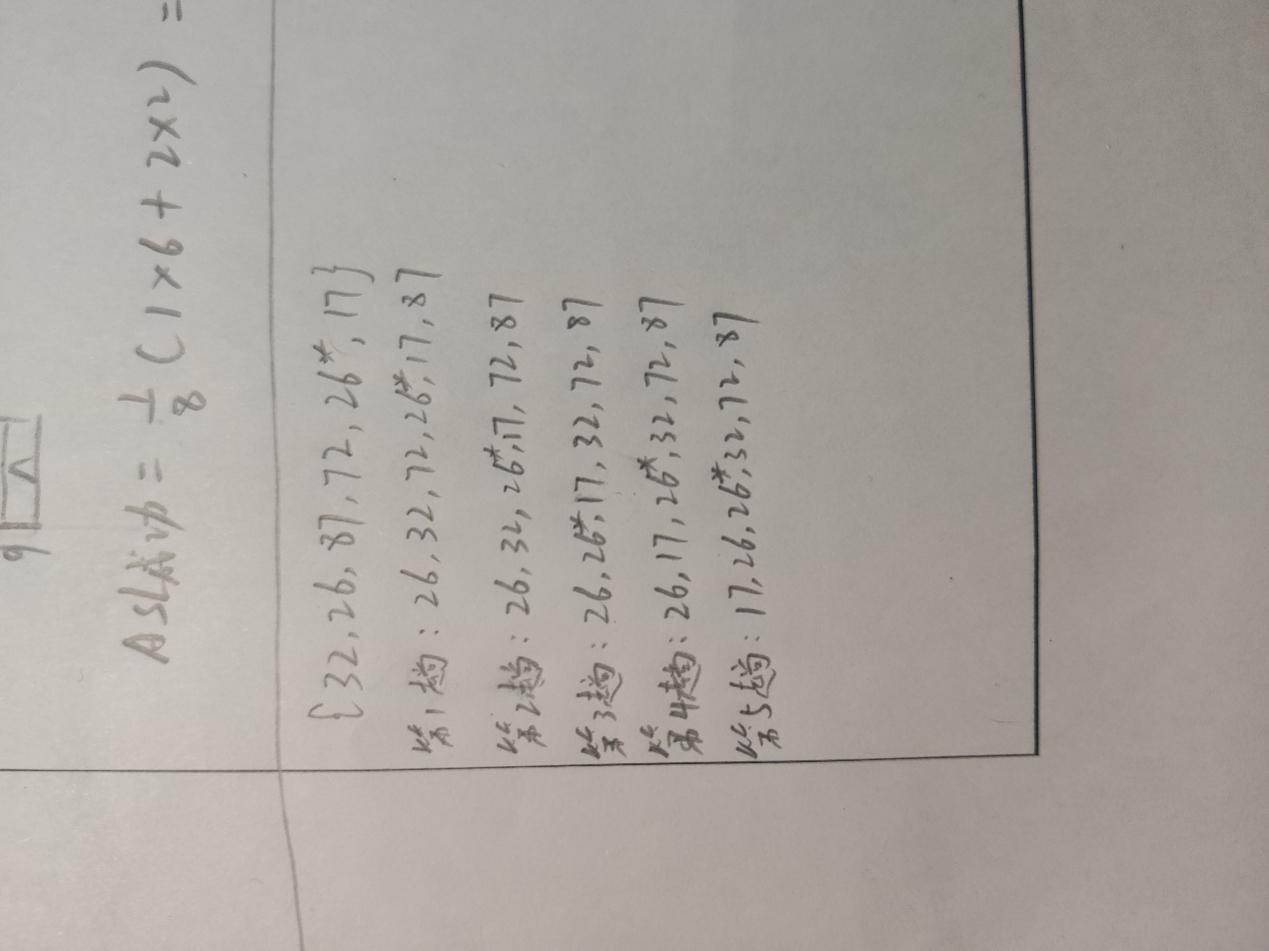 9 ^
ASL成功 = 1/8 (1×6 + 2×2) =
{32, 26, 87, 72, 26*, 17}
第1趟: 26, 32, 72, 26*, 17, 87
第2趟: 26, 32, 26*, 17, 72, 87
第3趟: 26, 26*, 17, 32, 72, 87
第4趟: 26, 17, 26*, 32, 72, 87
第5趟: 17, 26, 26*, 32, 72, 87